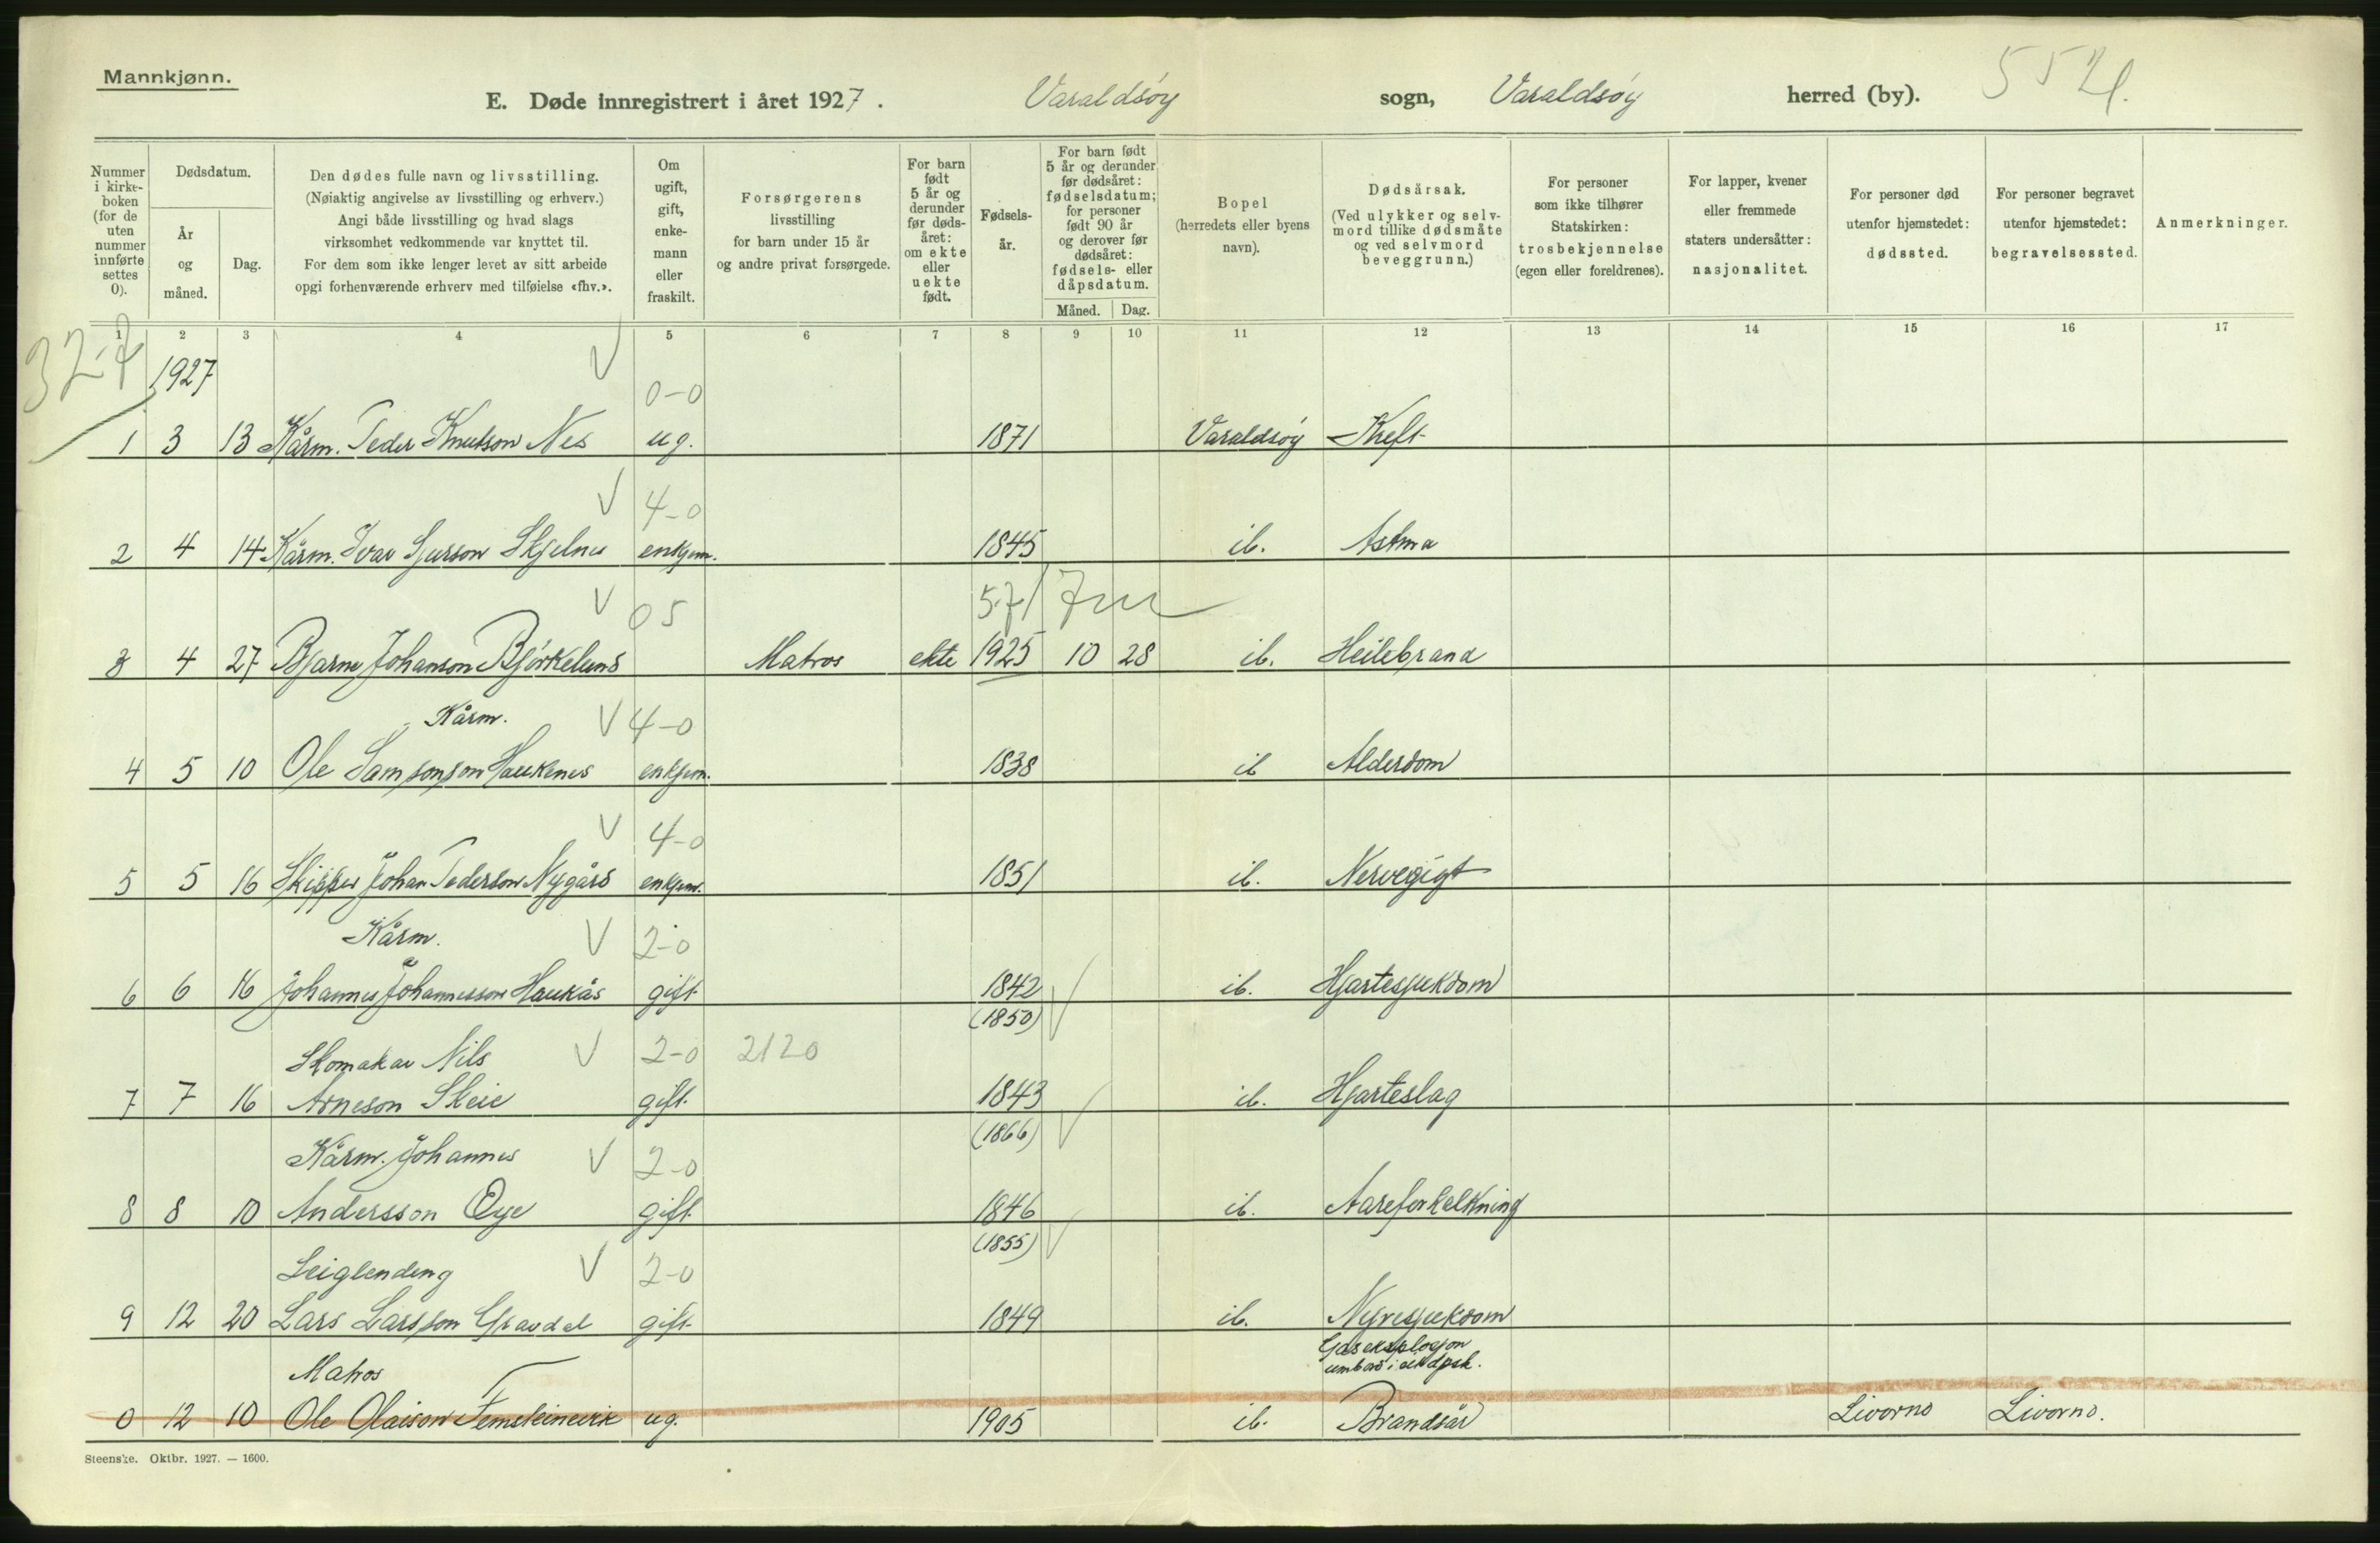 Mannkjønn.
E. Døde innregistrert i året 1927. Varaldsøy sogn, Varaldsøy herred (by).
Nummer i kirke-boken (for de uten nummer innførte settes 0).
Dødsdatum.
År og måned.
Dag.
Den dødes fulle navn og livsstilling.
(Nøiaktig angivelse av livsstilling og erhverv.)
Angi både livsstilling og hvad slags
virksomhet vedkommende var knyttet til.
For dem som ikke lenger levet av sitt arbeide
opgi forhenværende erhverv med tilføielse «fhv.».
Om ugift, gift, enke-mann eller fraskilt.
Forsørgerens
livsstilling
for barn under 15 år
og andre privat forsørgede.
For barn født 5 år og derunder før døds-året: om ekte eller uekte født.
Fødsels-år.
For barn født
5 år og derunder
før dødsåret:
fødselsdatum;
for personer
født 90 år
og derover før
dødsåret:
fødsels- eller
dåpsdatum.
Måned. Dag.
Bopel
(herredets eller byens
navn).
Dødsårsak.
(Ved ulykker og selv-
mord tillike dødsmåte
og ved selvmord
beveggrunn.)
For personer
som ikke tilhører
Statskirken:
trosbekjennelse
(egen eller foreldrenes).
For lapper, kvener
eller fremmede
staters undersåtter:
nasjonalitet.
For personer død
utenfor hjemstedet:
dødssted.
For personer begravet
utenfor hjemstedet:
begravelsessted.
Anmerkninger.
1 2 3 4 5 6 7 8 9 10 11 12 13 14 15 16 17
1927
0-0
1 3 13 Kårm. Peder Knutson Nes ug. 1871 Varaldsøy Kreft
4-0
2 4 14 Kårm. Ivar Sjurson Skjelnes enkjem. 1845 ib. Astma
05
3 4 27 Bjarne Johanson Bjørkelund Matros ekte 1925 10 28 ib. Heilebrand
Kårm. 4-0
4 5 10 Ole Samsonson Haukenes enkjem. 1838 ib Alderdom
4-0
5 5 16 Skipper Johan Pederson Nygård enkjem. 1851 ib. Nervegigt
Kårm. 2-0
6 6 16 Johannes Johannesson Haukås gift 1842 ib. Hjartesjukdom
(1850)
Skomakar Nils 2-0 2120
7 7 16 Arneson Skeie gift. 1843 ib. Hjarteslag
(1866)
Kårm. Johannes 2-0
8 8 10 Andersson Øye gift. 1846 ib. Aareforkalkning
(1855)
Leiglending 2-0
9 12 20 Lars Larsson Gravdal gift. 1849 ib. Nyresjukdom
Gaseksplosjon
Matros umbord i
0 12 10 Ole Olaison Femsteinevik ug. 1905 ib. Brandsår Livorno Livorno.
Steenske. Oktbr. 1927. — 1600.